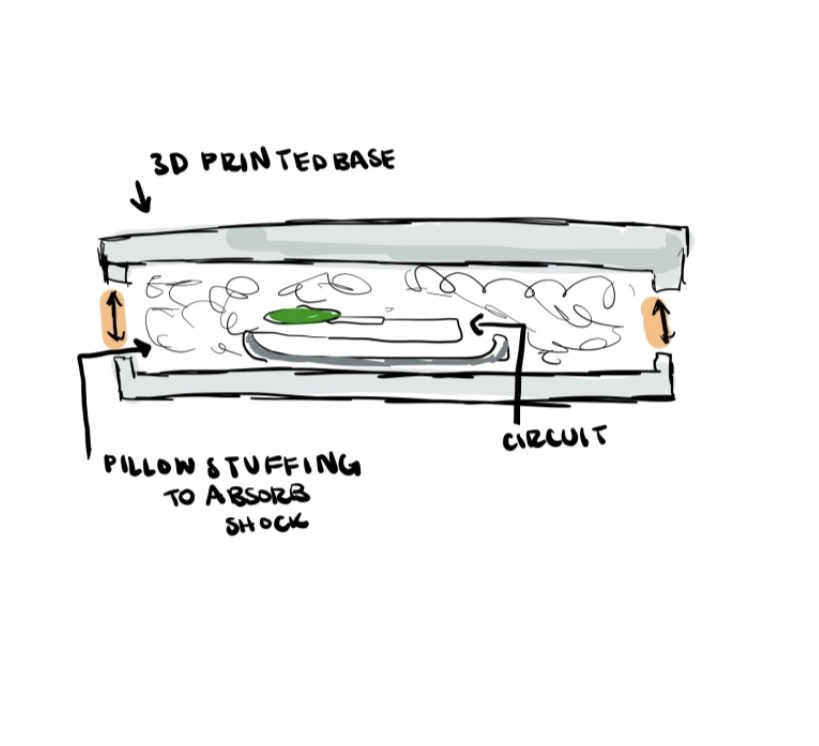 3D PRINTED BASE
CIRCUIT
PILLOW STUFFING
TO ABSORB
SHOCK